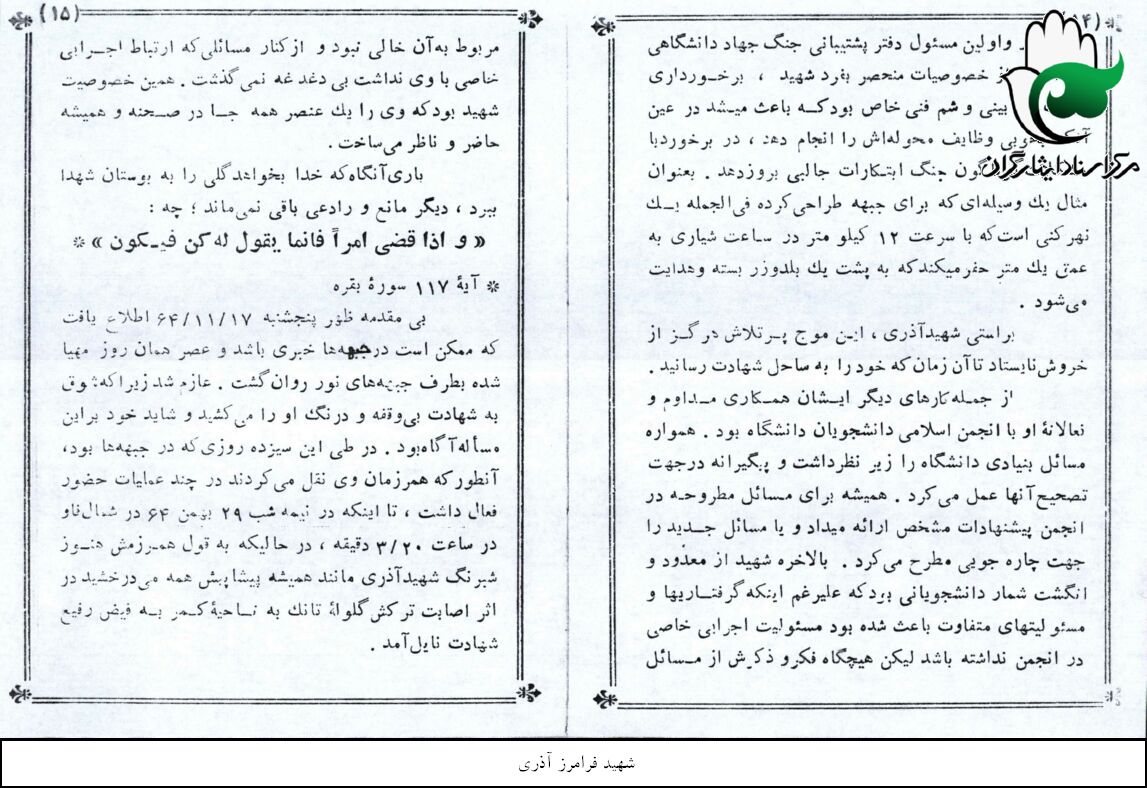 (۱۴)
و اولین مسئول دفتر پشتیبانی جنگ جهاد دانشگاهی
از خصوصیات منحصر بفرد شهید ، برخورداری
بینی و شم فنی خاص بود که باعث میشد در عین
وظایف محوله‌اش را انجام دهد ، در برخورد با
گون جنگ ابتکارات جالبی بروز دهد . بعنوان
مثال یك وسیله‌ای که برای جبهه طراحی کرده فی‌الجمله یك
نهر کنی است که با سرعت ۱۲ کیلو متر در ساعت شیاری به
عمق یك متر حفر میکند که به پشت یك بلدوزر بسته و هدایت
می‌شود .
براستی شهید آذری ، این موج پر تلاش هرگز از
خروش نایستاد تا آن زمان که خود را به ساحل شهادت رسانید .
از جمله کارهای دیگر ایشان همکاری مداوم و
فعالانهٔ او با انجمن اسلامی دانشجویان دانشگاه بود . همواره
مسائل بنیادی دانشگاه را زیر نظر داشت و پیگیرانه در جهت
تصحیح آنها عمل می کرد . همیشه برای مسائل مطروحه در
انجمن پیشنهادات مشخص ارائه میداد و با مسائل جدید را
جهت چاره جویی مطرح می کرد . بالاخره شهید از معدود و
انگشت شمار دانشجویانی بود که علیرغم اینکه گرفتاریها و
مسئولیتهای متفاوت باعث شده بود مسئولیت اجرایی خاصی
در انجمن نداشته باشد لیکن هیچگاه فکر و ذکرش از مسائل
(۱۵)
مربوط به آن خالی نبود و از کنار مسائلی که ارتباط اجرایی
خاصی با وی نداشت بی دغدغه نمی گذشت . همین خصوصیت
شهید بود که وی را یك عنصر همه جا در صحنه و همیشه
حاضر و ناظر می‌ساخت .
باری آنگاه که خدا بخواهد گلی را به بوستان شهدا
ببرد ، دیگر مانع و رادعی باقی نمی‌ماند ؛ چه :
« و اذا قضی امراً فانما یقول له کن فیکون » *
* آیهٔ ۱۱۷ سورهٔ بقره
بی مقدمه ظهر پنجشنبه ۶۴/۱۱/۱۷ اطلاع یافت
که ممکن است در جبهه‌ها خبری باشد و عصر همان روز مهیا
شده بطرف جبهه‌های نور روان گشت . عازم شد زیرا که شوق
به شهادت بی‌وقفه و درنگ او را می کشید و شاید خود بر این
مسأله آگاه بود . در طی این سیزده روزی که در جبهه‌ها بود،
آنطور که همرزمان وی نقل می کردند در چند عملیات حضور
فعال داشت ، تا اینکه در نیمه شب ۲۹ بهمن ۶۴ در شمال فاو
در ساعت ۳/۲۰ دقیقه ، در حالیکه به قول همرزمش هنوز
شبرنگ شهید آذری مانند همیشه پیشاپیش همه می درخشید در
اثر اصابت ترکش گلولهٔ تانك به ناحیهٔ کمر به فیض رفیع
شهادت نایل آمد .
مرکز اسناد ایثارگران
شهید فرامرز آذری